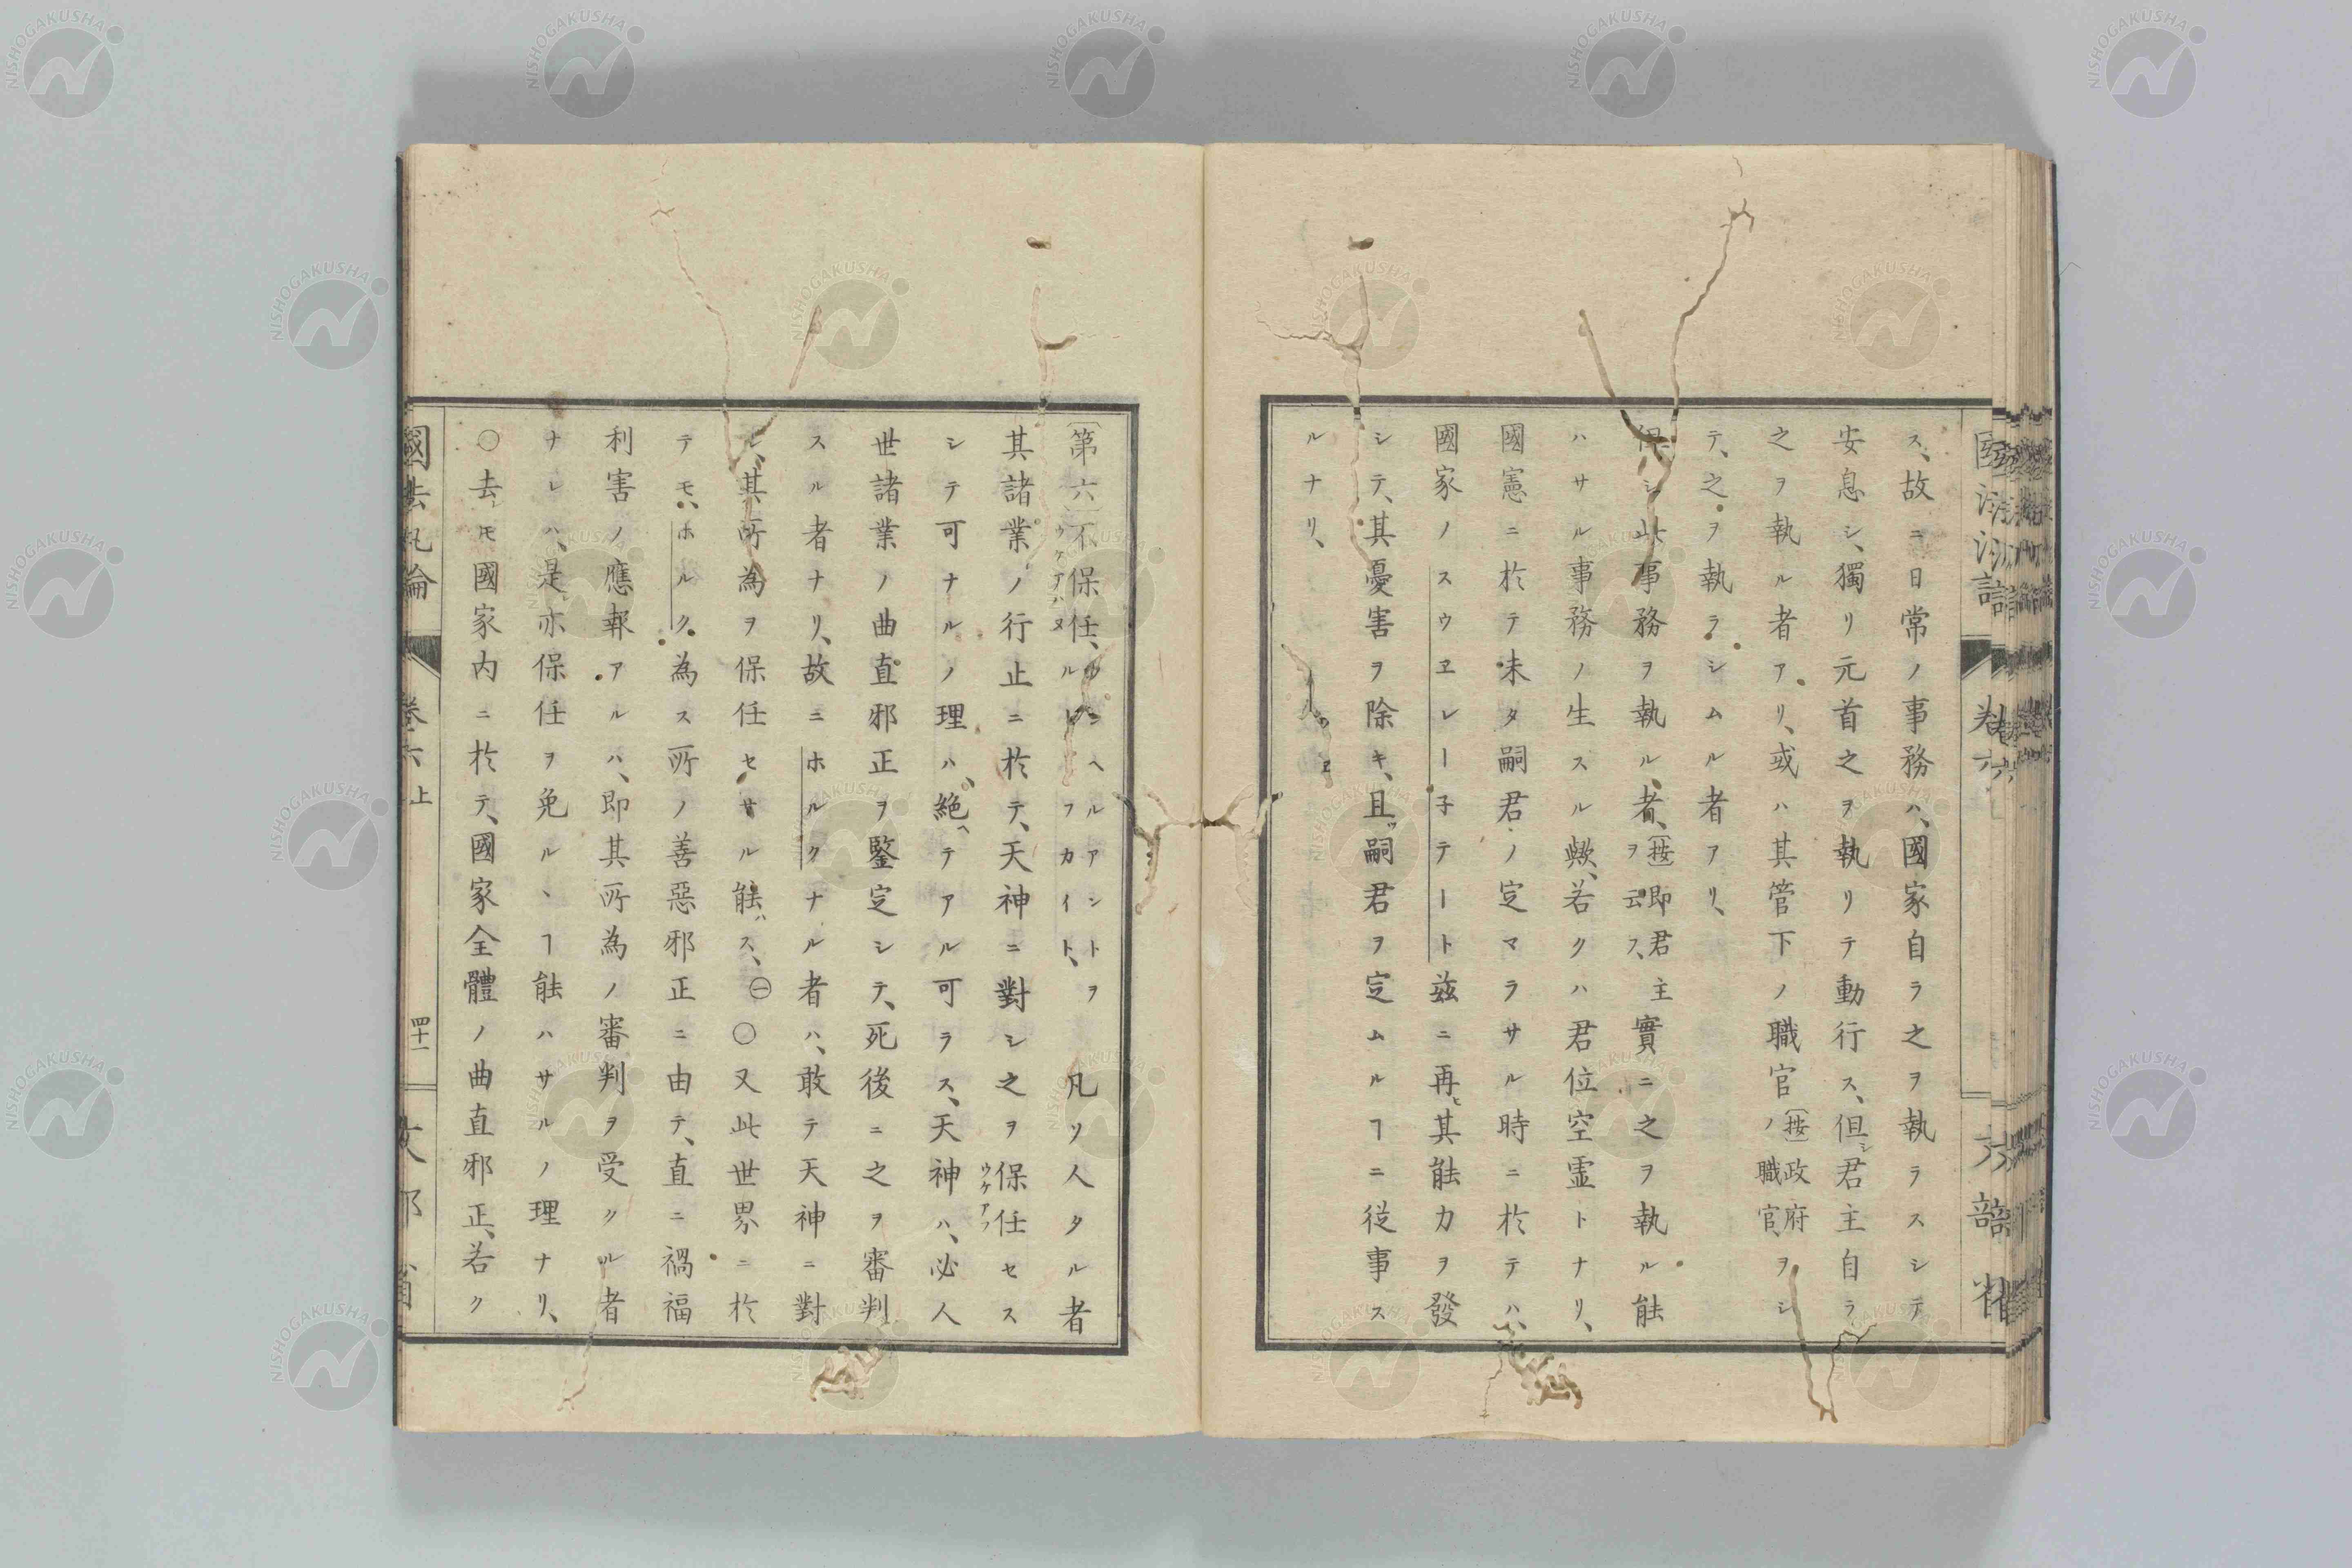 ス、故ニ日常ノ事務ハ、國家自ラ之ヲ執ラスシテ
安息シ、獨リ元首之ヲ執リテ動行ス、但シ君主自ラ
之ヲ執ル者アリ、或ハ其管下ノ職官〔按〕政府ノ職官ヲシ
テ、之ヲ執ラシムル者アリ、
保シ此事務ヲ執ル者、〔按〕即君主ヲ云フ、實ニ之ヲ執ル能
ハサル事務ノ生スル歟、若クハ君位空霊トナリ、
國憲ニ於テ未タ嗣君ノ定マラサル時ニ於テハ、
國家ノスウヱレーネテート茲ニ再ヒ其能力ヲ發
シテ、其憂害ヲ除キ、且ツ嗣君ヲ定ムルヿニ従事ス
ルナリ、
〔第六〕不保任、ウケアハヌ ウンヘルアントヲルトリフカイト、凡ソ人タル者
其諸業ノ行止ニ於テ、天神ニ對シ之ヲ保任ウケアフセス
シテ可ナルノ理ハ、絶ヘテアル可ラス、天神ハ、必人
世諸業ノ曲直邪正ヲ鑒定シテ、死後ニ之ヲ審判
スル者ナリ、故ニホルクナル者ハ、敢テ天神ニ對
シ、其所為ヲ保任セサル能ハス、㊀〇又此世界ニ於
テモ、ホルク為ス所ノ善惡邪正ニ由テ、直ニ禍福
利害ノ應報アルハ、即其所為ノ審判ヲ受クル者
ナレハ、是レ亦保任ヲ免ルヽヿ能ハサルノ理ナリ、
〇去レモ國家内ニ於テ、國家全體ノ曲直邪正、若ク
國法汎論
卷六上
四十一
文部省
NISHOGAKUSHA